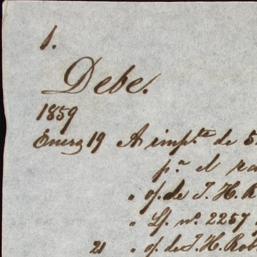 1.
Debe.
1859
Enero 19 A impte de 5
pr el ra
" of. de J. H. R
" Lf. no. 2257
21 " of. de J. H. Rob